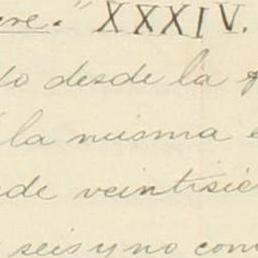 ere." XXXIV.
do desde la
la misma e
de veintisie
seis y no com